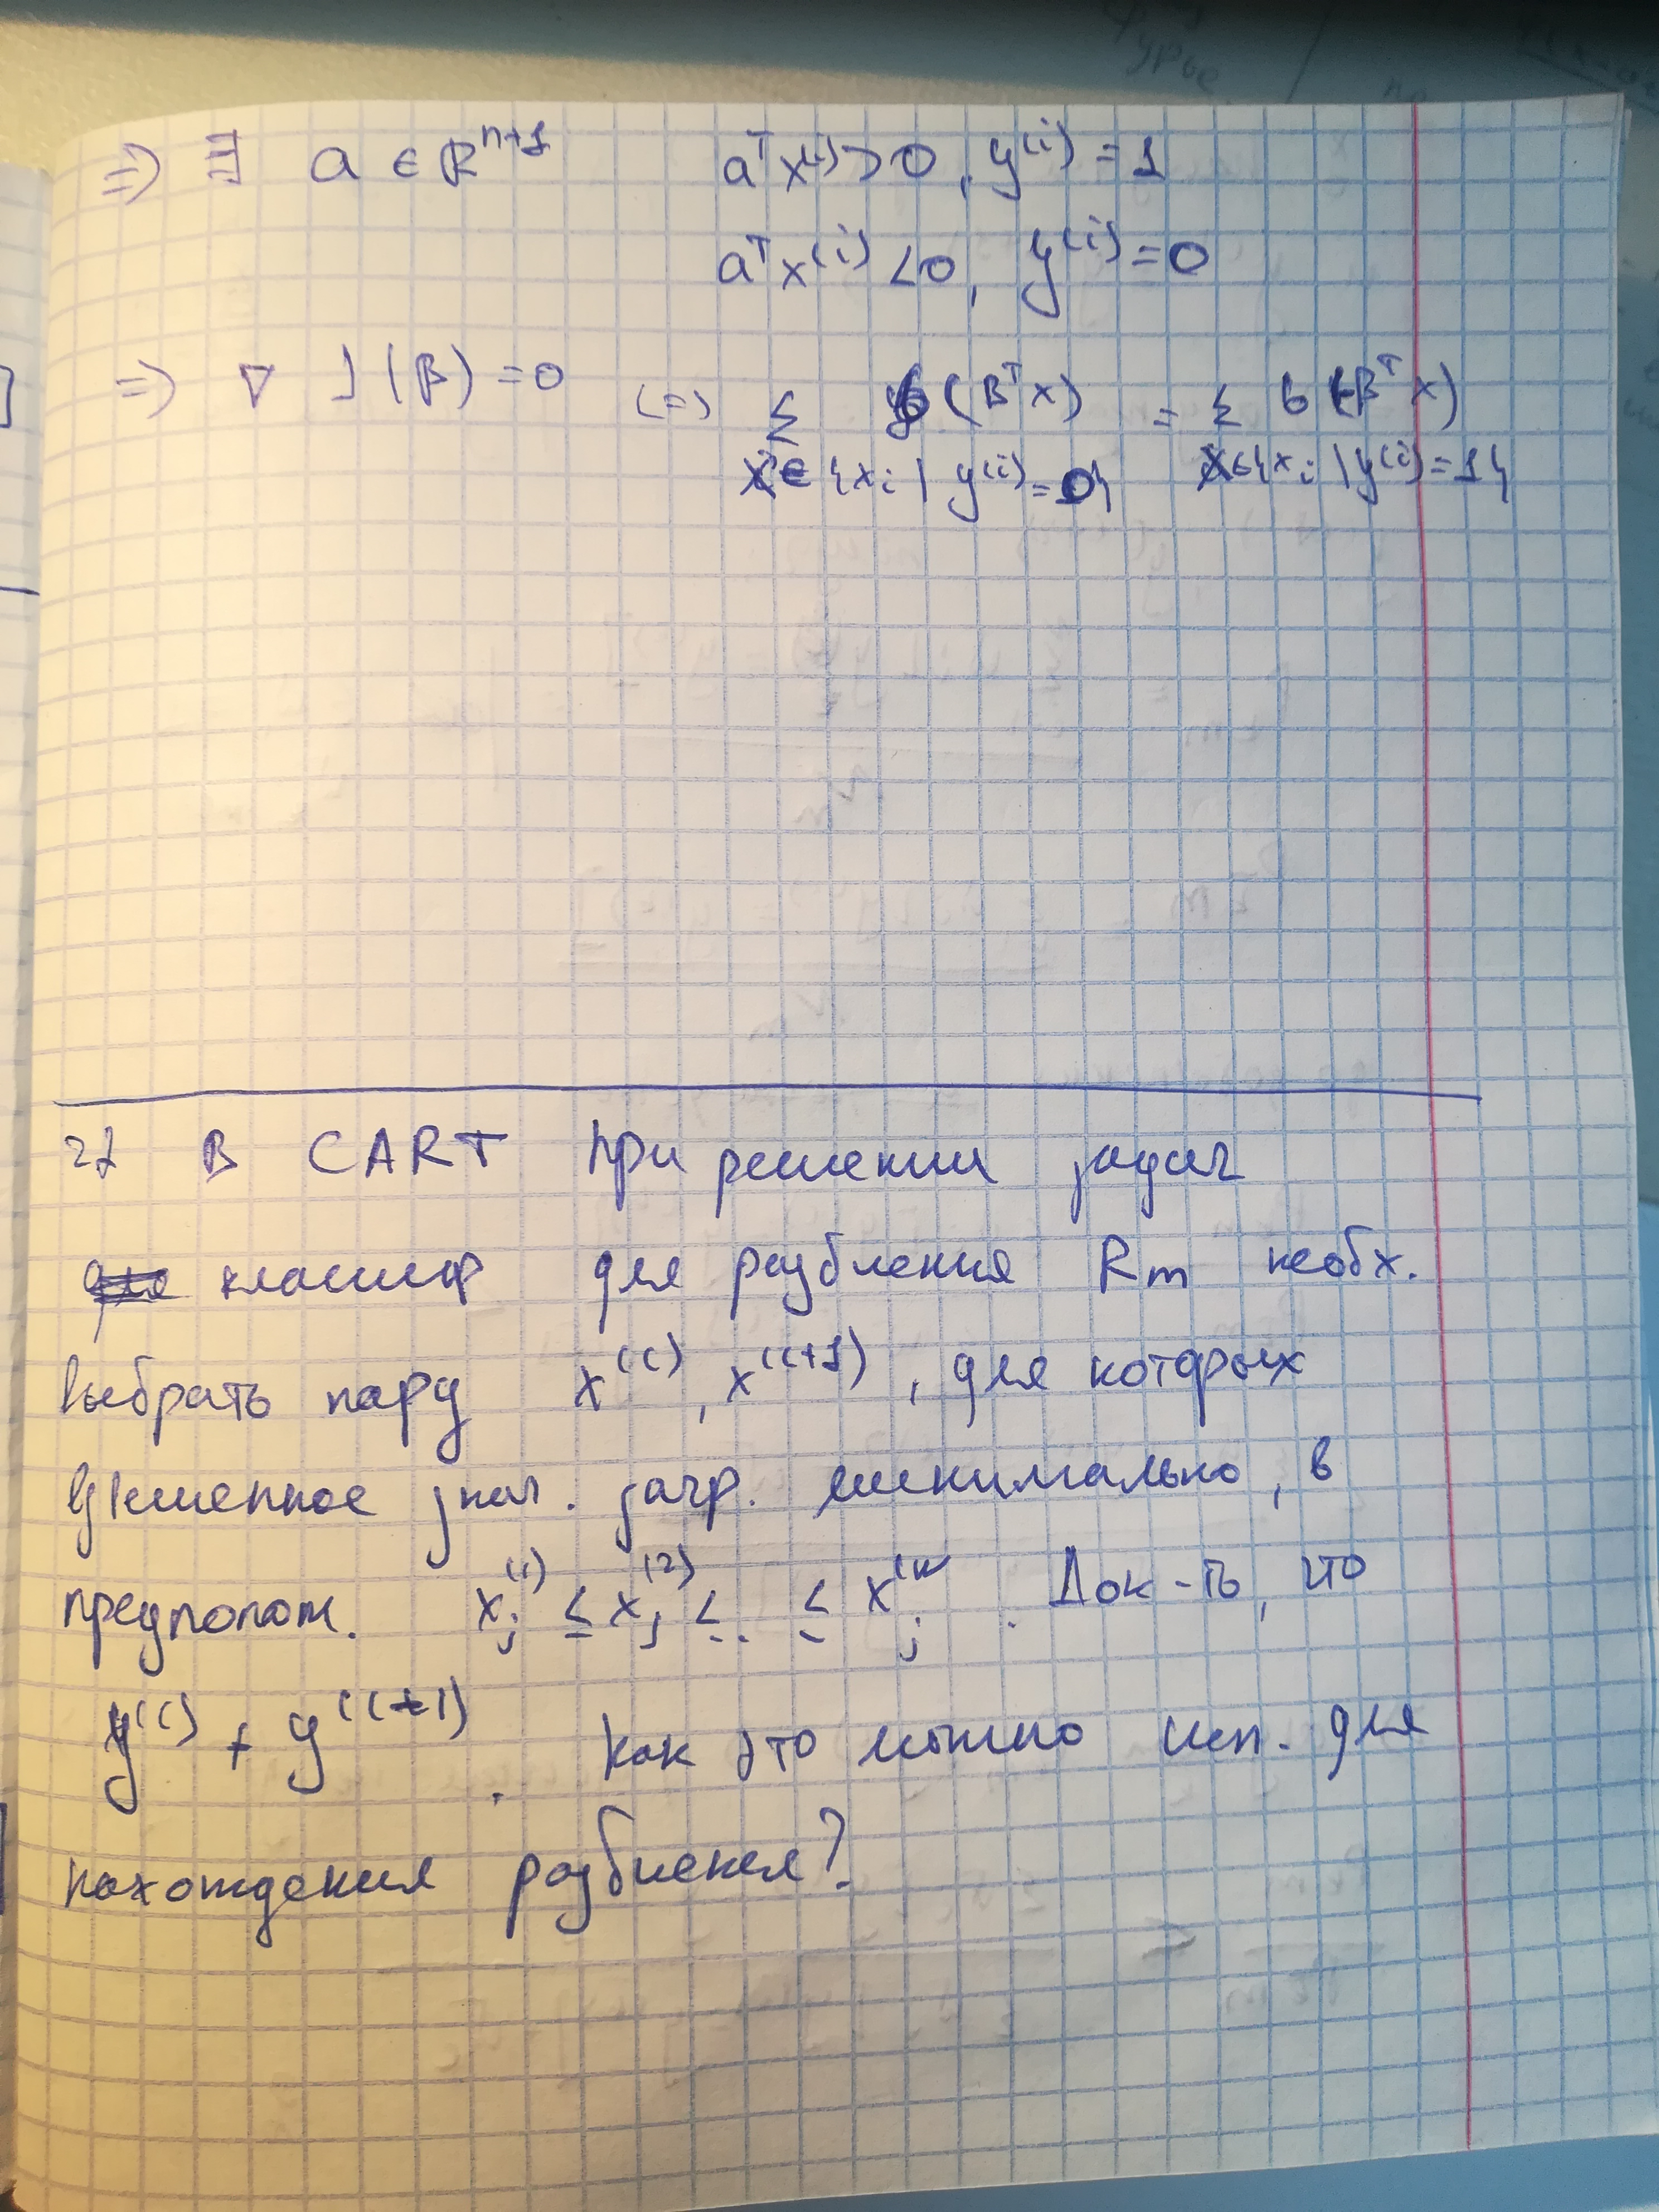 => ∃ a ∈ ℝⁿ⁺¹ aᵀx⁽ⁱ⁾ > 0, y⁽ⁱ⁾ = 1
aᵀx⁽ⁱ⁾ < 0, y⁽ⁱ⁾ = 0
=> ∇ J(β) = 0 (=) Σ б(βᵀx) = Σ б(-βᵀx)
x ∈ {xᵢ | y⁽ⁱ⁾ = 0} x ∈ {xᵢ | y⁽ⁱ⁾ = 1}
2) В CART при решении задач
классиф для разбиения Rm необх.
выбрать пару x⁽ⁱ⁾, x⁽ⁱ⁺¹⁾, для которых
знач. загр. минимально, в
предполож. xⱼ⁽¹⁾ ≤ xⱼ⁽²⁾ ≤ .. ≤ xⱼ⁽ᴺ⁾. Док-ть, что
y⁽ⁱ⁾ ≠ y⁽ⁱ⁺¹⁾. Как это можно исп. для
нахождения разбиения?